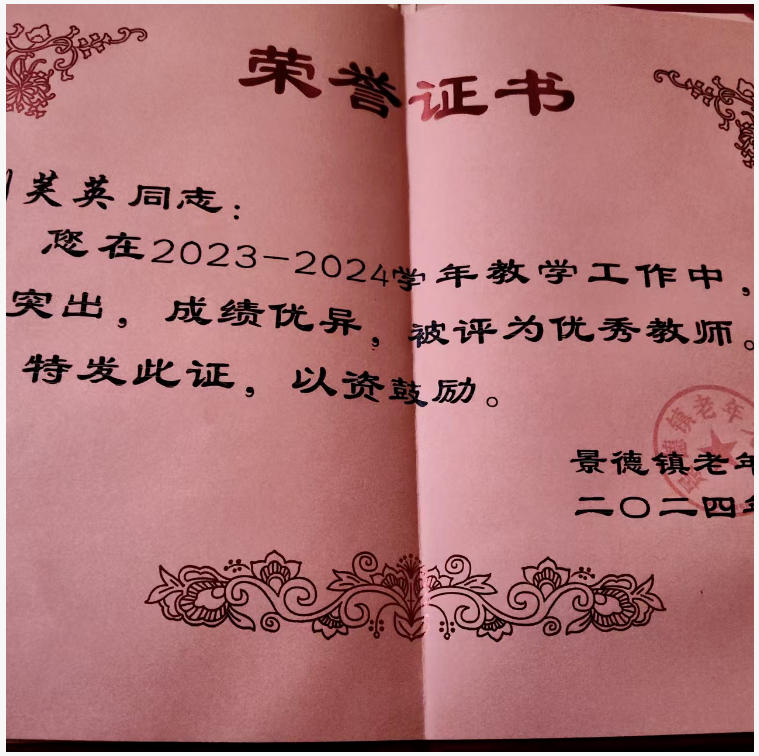 荣誉证书
芙英同志：
您在2023－2024学年教学工作中，
突出，成绩优异，被评为优秀教师。
特发此证，以资鼓励。
镇老年
景德镇老年
二〇二四年